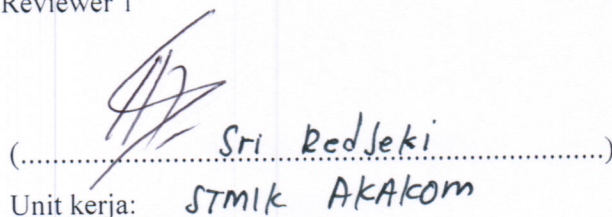 Reviewer 1
(.......... Sri Redjeki ..........)
Unit kerja: STMIK AKAKOM